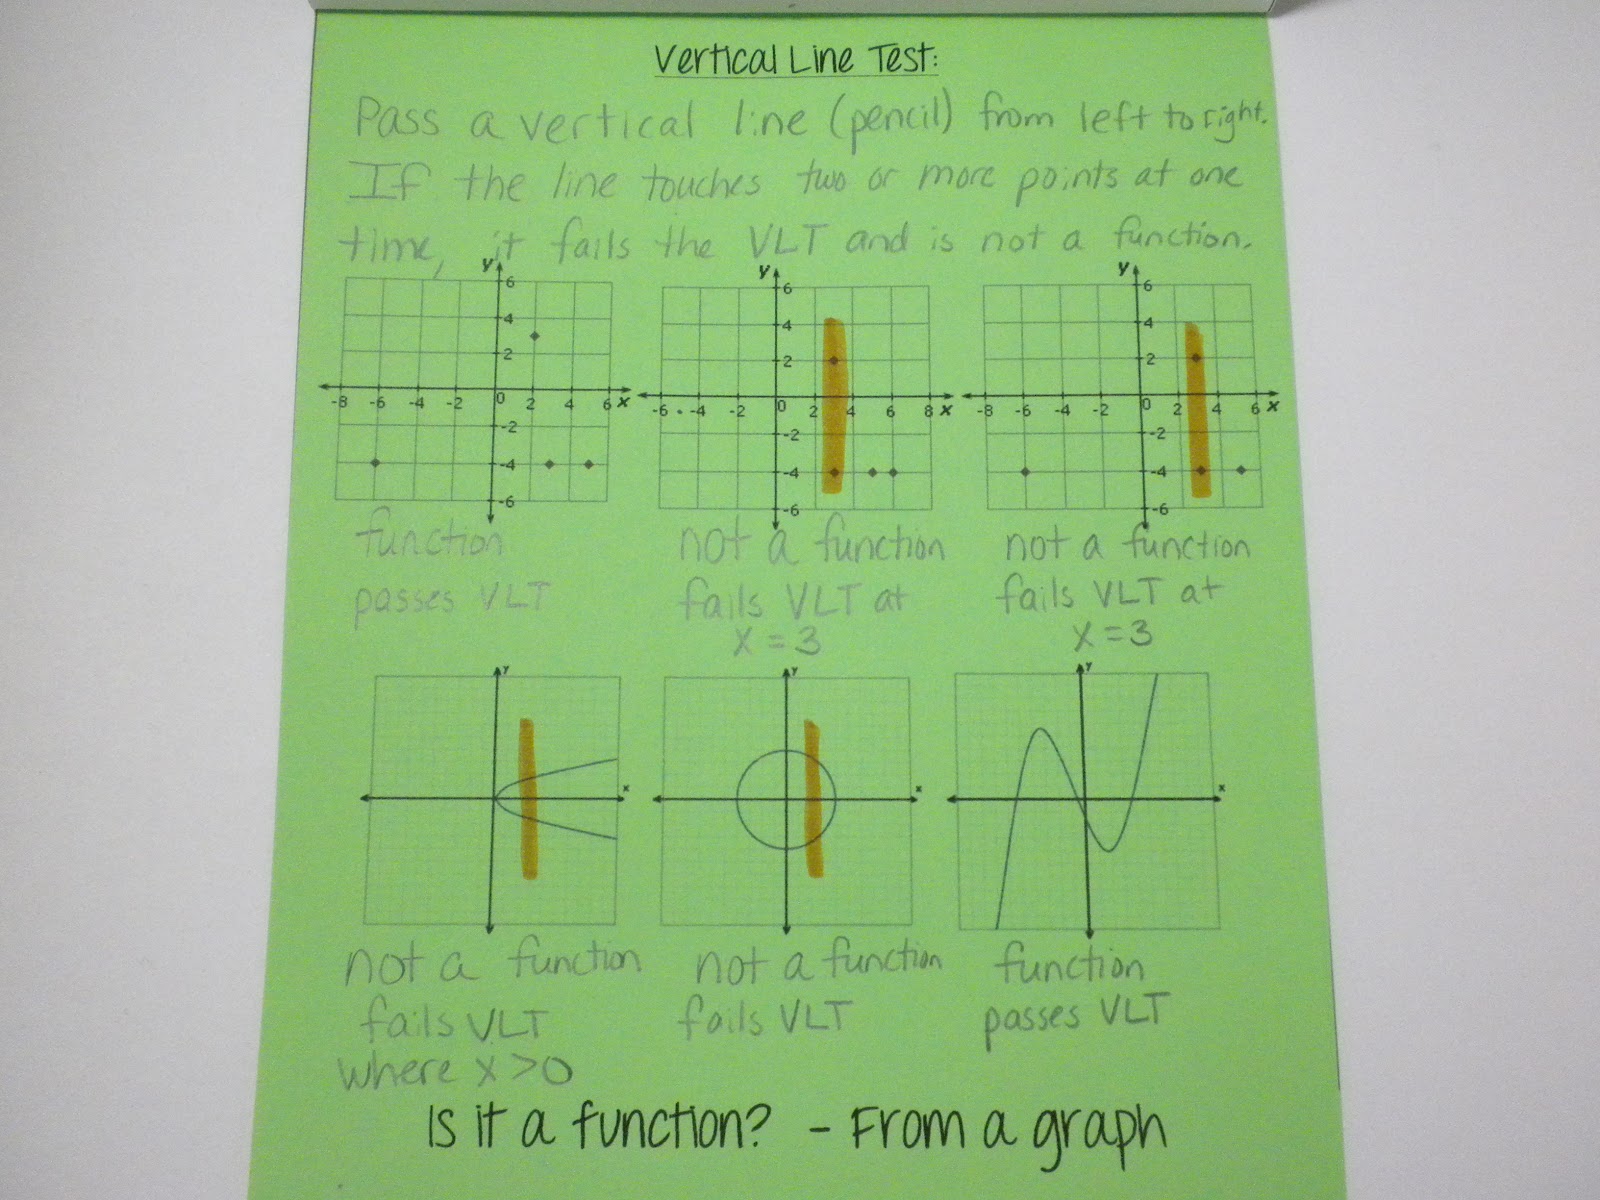 Vertical Line Test:
Pass a vertical line (pencil) from left to right.
If the line touches two or more points at one
time, it fails the VLT and is not a function.
y y y
6 6 6
4 4 4
2 2 2
-8 -6 -4 -2 0 2 4 6 x -6 -4 -2 0 2 4 6 8 x -8 -6 -4 -2 0 2 4 6 x
-2 -2 -2
-4 -4 -4
-6 -6 -6
function not a function not a function
passes VLT fails VLT at fails VLT at
x = 3 x = 3
y y y
x x x
not a function not a function function
fails VLT fails VLT passes VLT
where x > 0
Is it a function? - From a graph